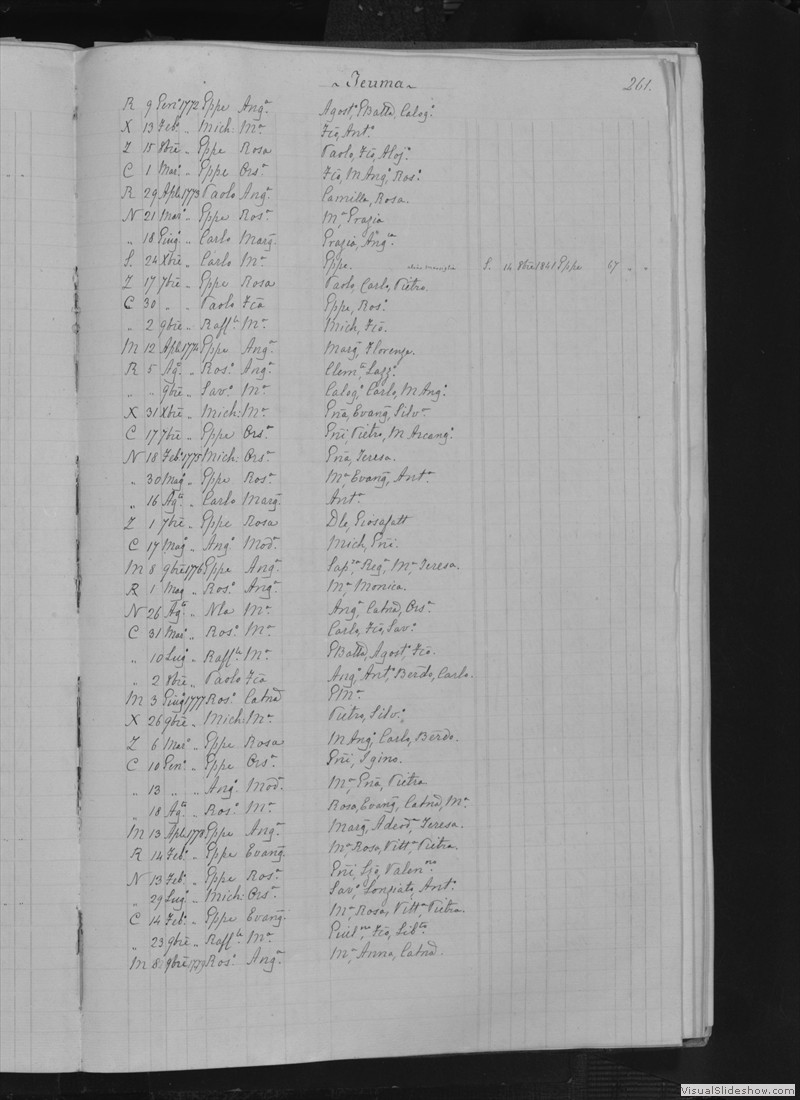 ~ Teuma ~ 261.
R 9 Gen.º 1772 Gppe Ang.ª Agost.º GBatta, Calog.º
X 13 Feb.º „ Mich: M.ª Fco, Ant.º
Z 15 8bre „ Gppe Rosa Paolo, Fco, Aloj.º
C 1 Mar.º „ Gppe Ors.ª Fco, M Ang.º, Ros.º
R 29 Aple 1773 Paolo Ang.ª Camilla, Rosa.
N 21 Mar.º „ Gppe Ros.ª M.ª Grazia
„ 18 Giug.º „ Carlo Marg. Grazia, Ang.ca
S. 24 Xbre „ Carlo M.ª Gppe. S. 14 8bre 1841 Gppe 67 „ „
Z 17 7bre „ Gppe Rosa Paolo, Carlo, Pietro.
C 30 „ „ Paolo Fca Gppe, Ros.º
„ 2 9bre „ Raff.le M.ª Mich, Fco.
M 12 Aple 1774 Gppe Ang.ª Marg, Florenza.
R 5 Ag.to „ Ros.º Ang.ª Clem.te, Lazz.º
„ „ 9bre „ Sav.º M.ª Calog.º Carlo, M Ang.º
X 31 Xbre „ Mich: M.ª Gna, Evang, Silv.ª
C 17 7bre „ Gppe Ors.ª Gni, Pietro, M Arcang.º
N 18 Feb.º 1775 Mich: Ors.ª Gna, Teresa.
„ 30 Mag.º „ Gppe Ros.ª M.ª Evang, Ant.ª
„ 16 Ag.to „ Carlo Marg. Ant.ª
Z 1 7bre „ Gppe Rosa Dlo, Giosafatt
C 17 Mag.º „ Ang.º Mod.ª Mich, Gni.
M 8 9bre 1776 Gppe Ang.ª Sap.za Reg.ª M.ª Teresa.
R 1 Mag „ Ros.º Ang.ª M.ª Monica.
N 26 Ag.to „ Nla M.ª Ang.ª Catna, Ors.ª
C 31 Mar.º „ Ros.º M.ª Carlo, Fco, Sav.º
„ 10 Lug.º „ Raff.le M.ª GBatta, Agost.º Fco.
„ 2 8bre „ Paolo Fca Ang.º Ant.º Berdo, Carlo.
M 3 Giug.º 1777 Ros.º Catna GM.ª
X 26 9bre „ Mich: M.ª Pietro, Silv.º
Z 6 Mar.º „ Gppe Rosa M Ang.º, Carlo, Berdo.
C 10 Gen.º „ Gppe Ors.ª Gni, Igino.
„ 13 „ „ Ang.º Mod.ª M.ª Gna, Pietra
„ 18 Ag.to „ Ros.º M.ª Rosa, Evang, Catna, M.ª
M 13 Aple 1778 Gppe Ang.ª Marg, Adeod.ª Teresa.
R 14 Feb.º „ Gppe Evang. M.ª Rosa, Vitt.ª Pietra.
N 13 Feb.º „ Gppe Ros.ª Gni, Ljo, Valen.no
„ 29 Lug.º „ Mich: Ors.ª Sav.º Longiato, Ant.º
C 14 Feb.º „ Gppe Evang. M.ª Rosa, Vitt.ª Pietra.
„ 23 9bre „ Raff.le M.ª Fco, Lib.to
M 8 9bre 1779 Ros.º Ang.ª M.ª Anna, Catna.
VisualSlideshow.com